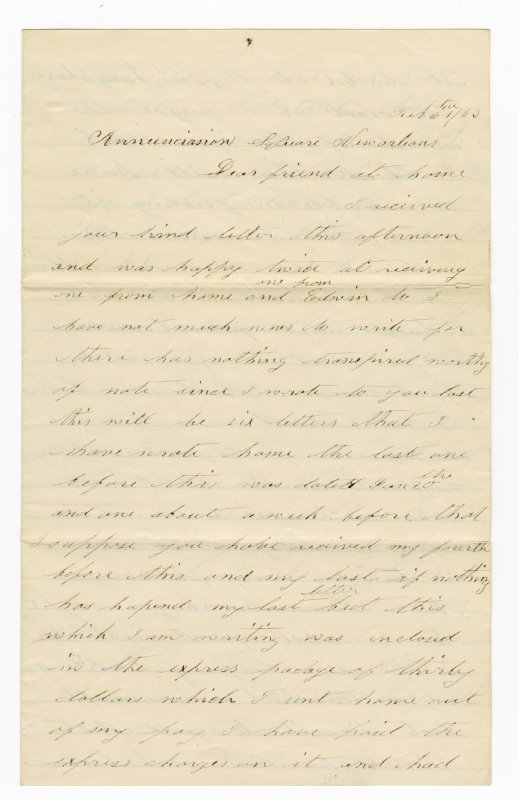 Feb 6th /63
Annunciasion Square Neworleans
Dear friend at home
I recieved
your kind letter this afternoon
and was happy twice at recieving
one from
one from home and Edwin to I
have not much news to write for
there has nothing transpired worthy
of note since I wrote to you last
this will be six letters that I
have wrote home the last one
before this was dated the
and one about a week before that
I suppose you have recieved my fourth
before this and my last if nothing
letter
has hapend my last but this
which I am writing was inclosed
in the express package of thirty
dollars which I sent home out
of my pay I have paid the
express charges on it and had